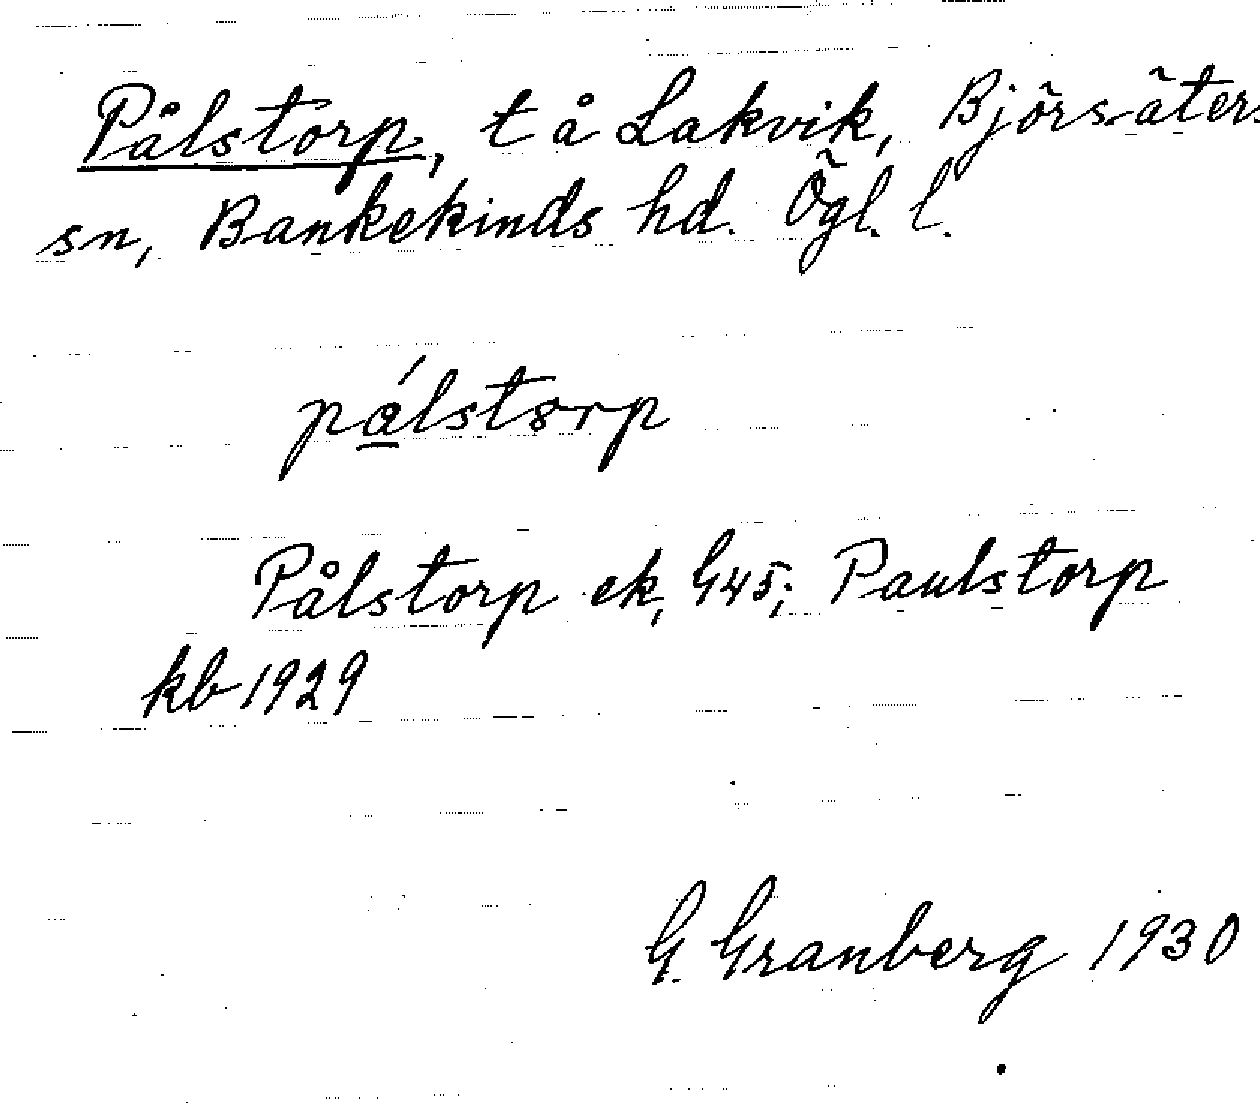 Pålstorp, t å Lakvik, Björsäters
sn, Bankekinds hd. Ögl. l.
pálstorp
Pålstorp ek, G45; Paulstorp
kb 1929
G. Granberg 1930